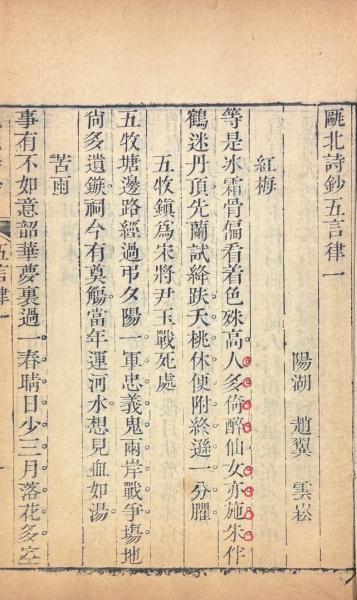 甌北詩鈔五言律一
陽湖 趙翼 雲崧
紅梅
等是氷霜骨偏看着色殊高人多倚醉仙女亦施朱伴
鶴迷丹頂先蘭試絳趺夭桃休便附終遜一分臞
五牧鎮為宋將尹玉戰死處
五牧塘邊路經過弔夕陽一軍忠義鬼兩岸戰爭塲地
尙多遺鏃祠今有奠觴當年運河水想見血如湯
苦雨
事有不如意韶華夢裏過一春晴日少三月落花多空
五言律一